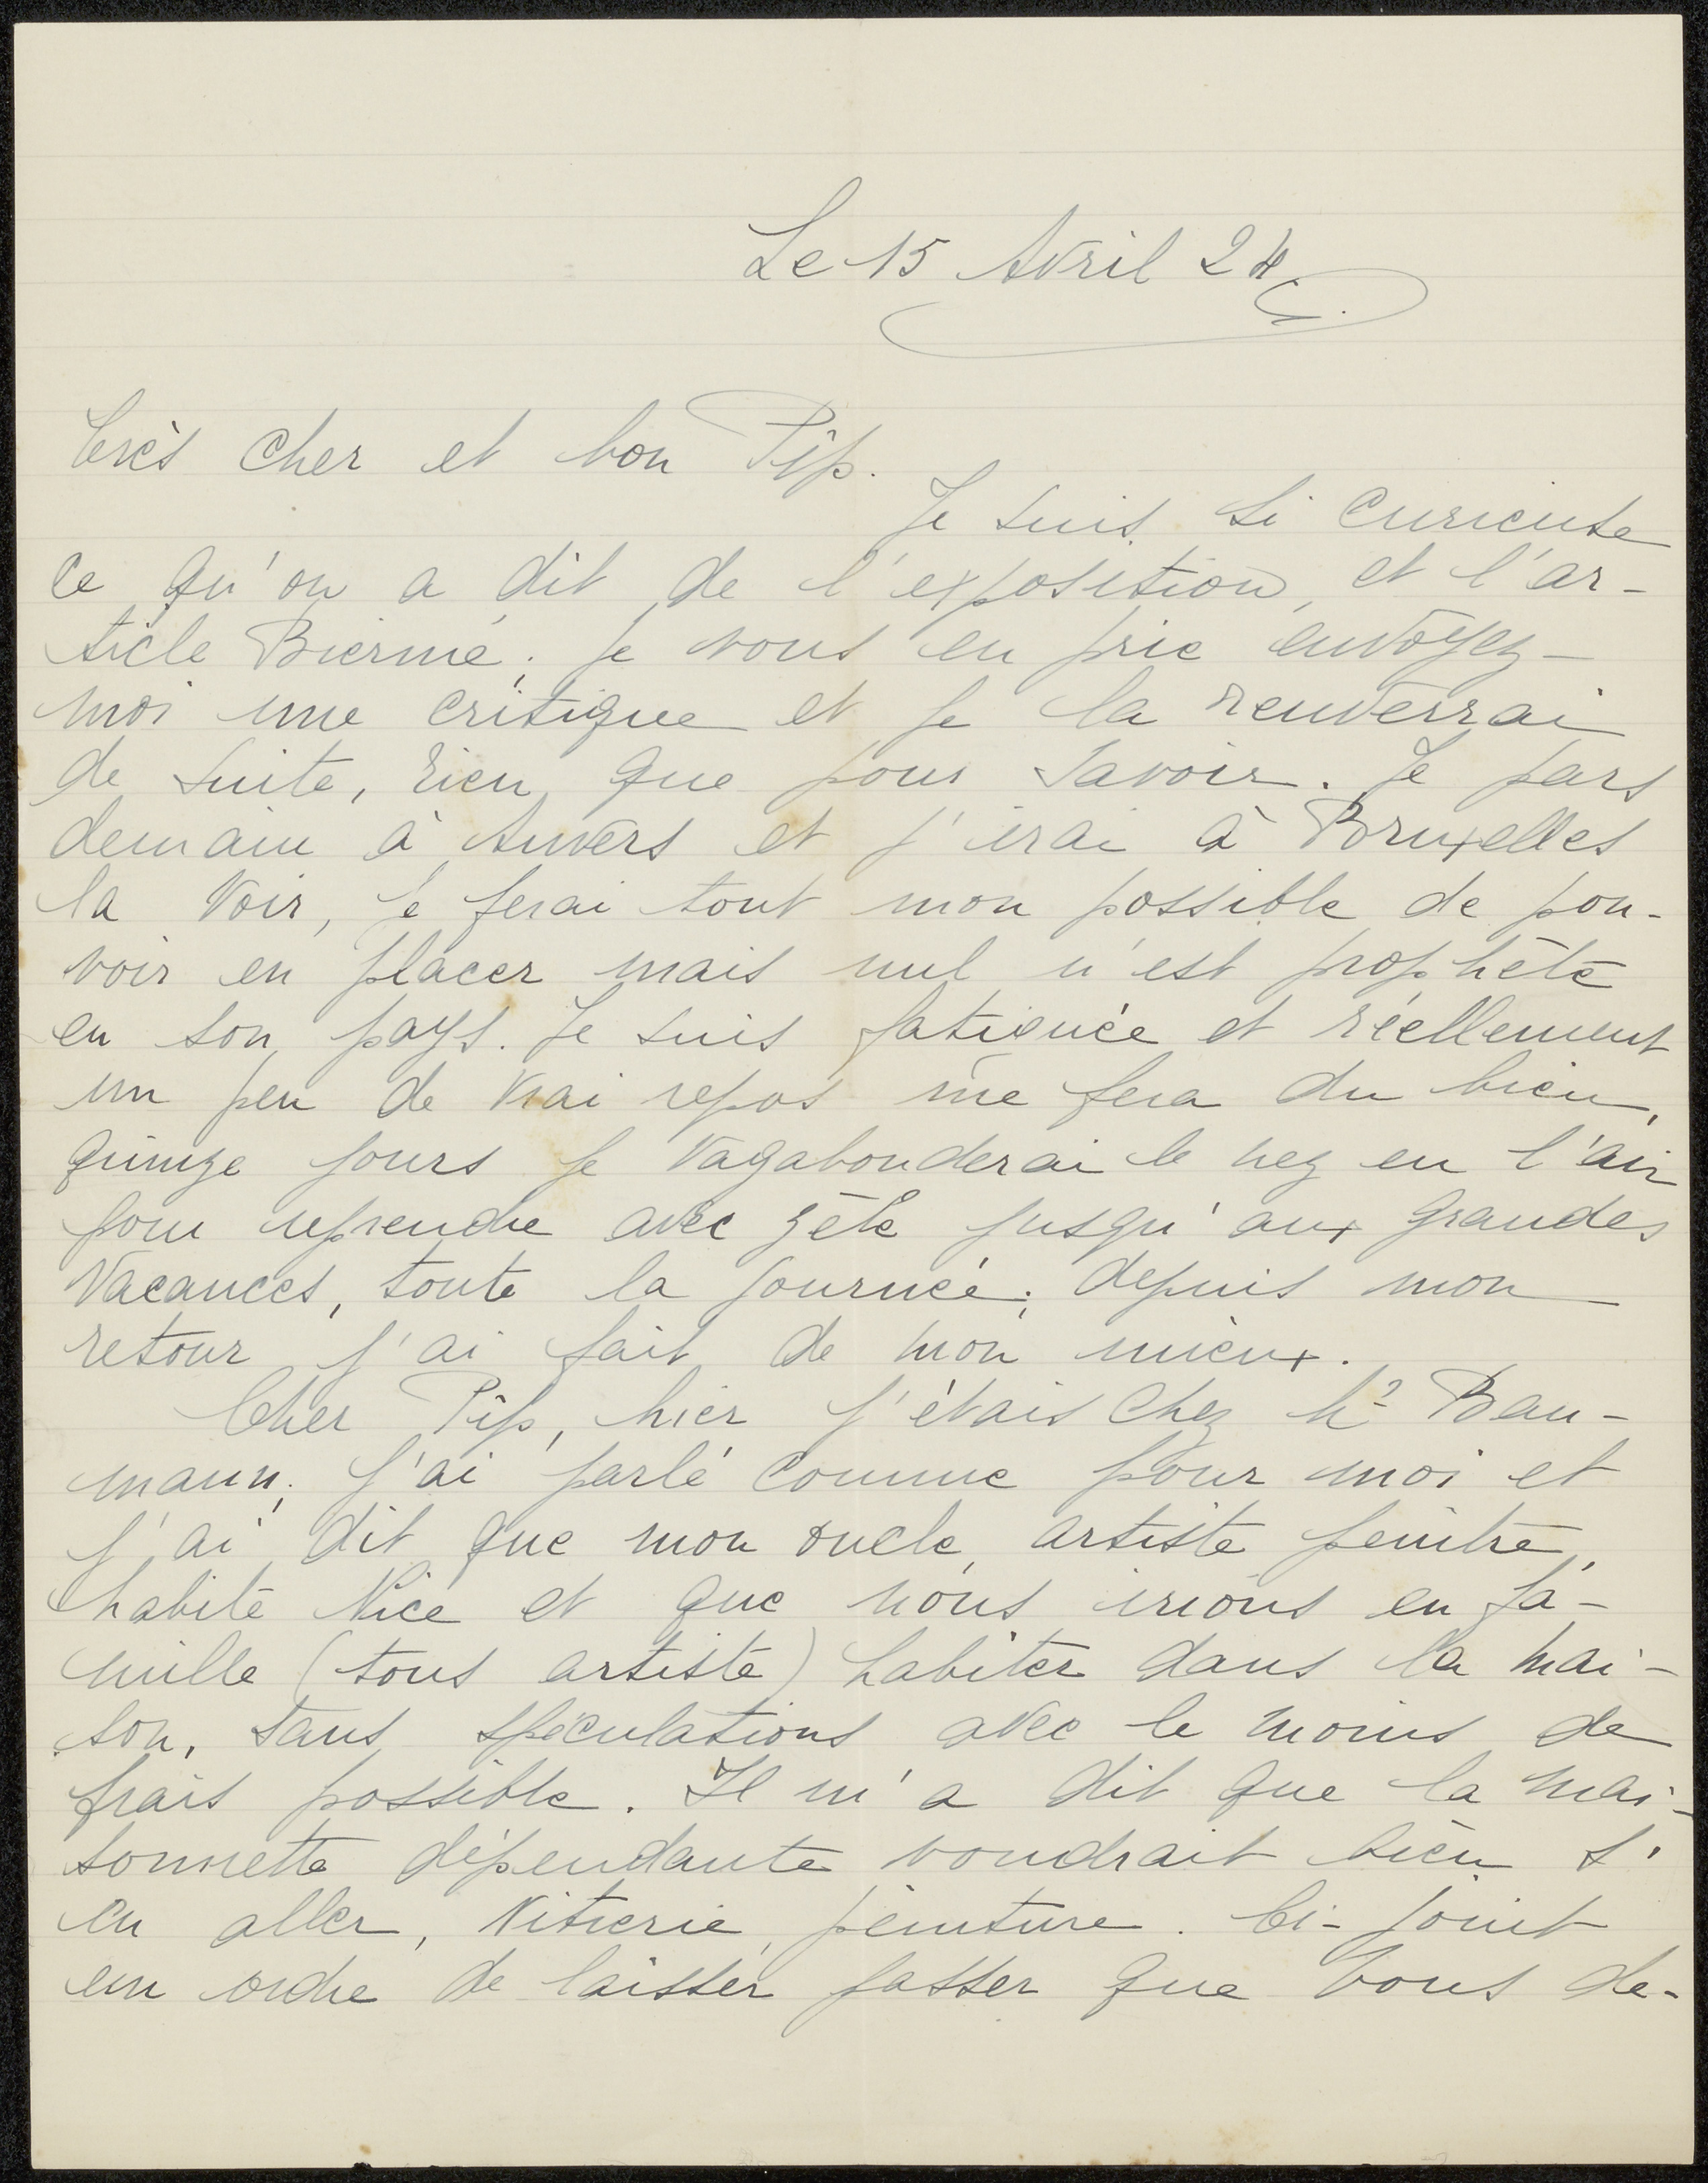 Le 15 Avril 24
Très cher et bon Pip.
Je suis si curieuse
ce qu'on a dit de l'exposition, et l'ar-
ticle Biermé; je vous en prie envoyez-
moi une critique et je la renverrai
de suite, rien que pour savoir. Je pars
demain à Anvers et j'irai à Bruxelles
la voir, je ferai tout mon possible de pou-
voir en placer mais nul n'est prophète
en son pays. Je suis fatiguée et réellement
un peu de vrai repos me fera du bien,
quinze jours je vagabonderai le nez en l'air
pour reprendre avec zèle jusqu'aux grandes
vacances, toute la journée; depuis mon
retour j'ai fait de mon mieux.
Cher Pip, hier j'étais chez Mr Bau-
mann; j'ai parlé comme pour moi et
j'ai dit que mon oncle, artiste peintre,
habite Nice et que nous irions en fa-
mille (tous artiste) habiter dans la mai-
son, sans spéculations avec le moins de
frais possible. Il m'a dit que la mai-
sonnette dépendante voudrait bien s'
en aller, vitrerie, peinture. Ci-joint
un ordre de laisser passer que vous de-